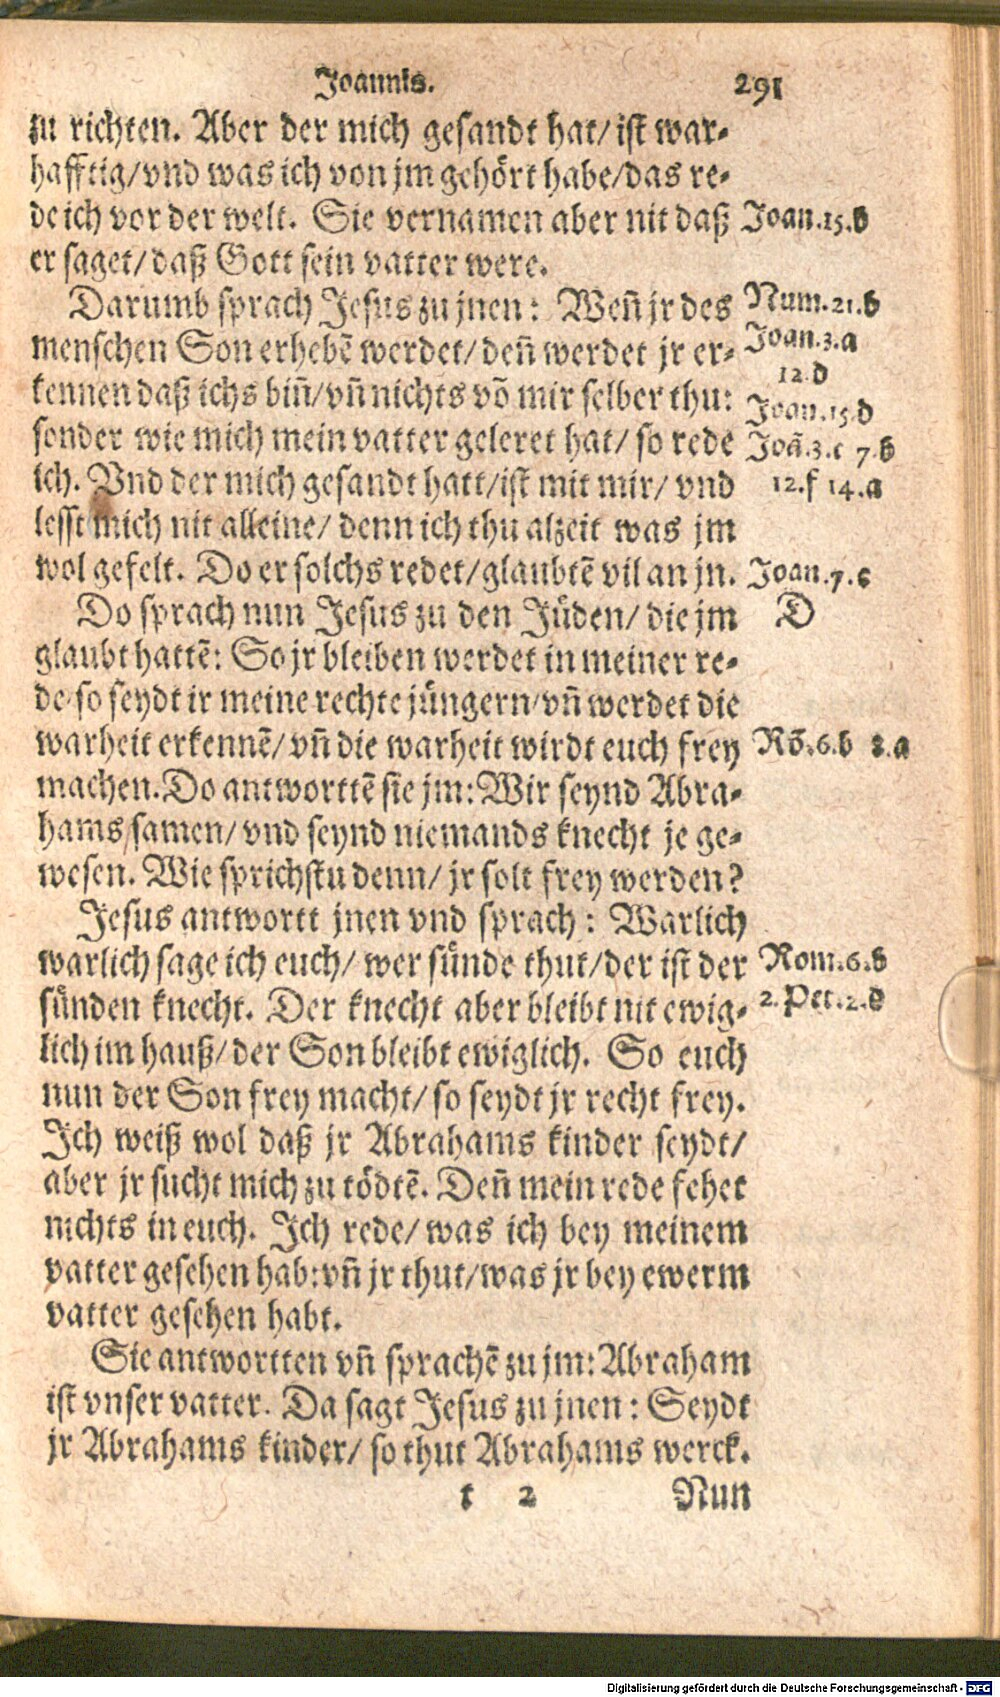 Joannis. 291
zu richten. Aber der mich gesandt hat/ ist war-
hafftig/vnd was ich von jm gehört habe/das re-
de ich vor der welt. Sie vernamen aber nit daß Joan.15.b
er saget/daß Gott sein vatter were.
Darumb sprach Jesus zu jnen: Weñ jr des Num.21.b
menschen Son erhebē werdet/deñ werdet jr er- Joan.3.a
12.d
kennen daß ichs biñ/vñ nichts vō mir selber thu: Joan.15.d
sonder wie mich mein vatter geleret hat/ so rede Joā.3.c 7.b
ich. Vnd der mich gesandt hatt/ist mit mir/ vnd 12.f 14.a
lesst mich nit alleine/ denn ich thu alzeit was jm
wol gefelt. Do er solchs redet/glaubtē vil an jn. Joan.7.c
Do sprach nun Jesus zu den Jüden/ die jm D
glaubt hattē: So jr bleiben werdet in meiner re-
de/so seydt ir meine rechte jüngern/vñ werdet die
warheit erkennē/vñ die warheit wirdt euch frey Rō.6.b 8.a
machen. Do antworttē sie jm: Wir seynd Abra-
hams samen/ vnd seynd niemands knecht je ge-
wesen. Wie sprichstu denn/ jr solt frey werden?
Jesus antwortt jnen vnd sprach: Warlich
warlich sage ich euch/ wer sünde thut/der ist der Rom.6.b
sünden knecht. Der knecht aber bleibt nit ewig- 2.Pet.2.d
lich im hauß/der Son bleibt ewiglich. So euch
nun der Son frey macht/ so seydt jr recht frey.
Ich weiß wol daß jr Abrahams kinder seydt/
aber jr sucht mich zu tödtē. Deñ mein rede fehet
nichts in euch. Ich rede/ was ich bey meinem
vatter gesehen hab:vñ jr thut/was jr bey ewerm
vatter gesehen habt.
Sie antwortten vñ sprachē zu jm: Abraham
ist vnser vatter. Da sagt Jesus zu jnen: Seydt
jr Abrahams kinder/ so thut Abrahams werck.
t 2 Nun
Digitalisierung gefördert durch die Deutsche Forschungsgemeinschaft - DFG